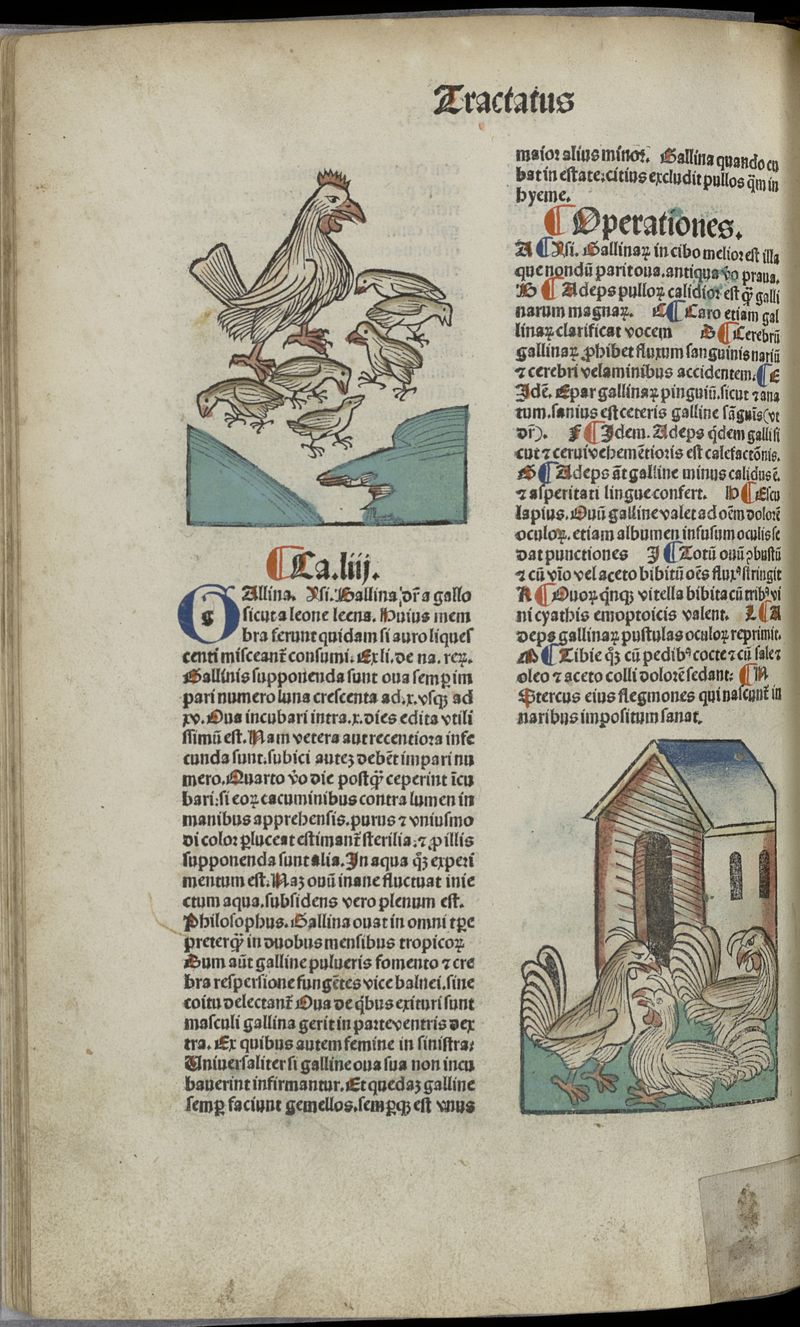 Tractatus
¶Ca.liij.
GAllina. Ysi. Gallina dr̄ a gallo
sicut a leone leena. Huius mem
bra ferunt quidam si auro liques
centi misceant᷑ consumi. Ex li. de na. reꝝ.
Gallinis supponenda sunt oua semꝑ im
pari numero luna crescenta ad .x. vsqꝫ ad
xv. Oua incubari intra .x. dies edita vtili
ssimū est. Nam vetera aut recentiora infe
cunda sunt. subici autеꝫ debēt impari nu
mero. Quarto v̄o die postq̄ꝫ ceperint īcu
bari: si eoꝝ cacuminibus contra lumen in
manibus apprehensis. purus ⁊ vniusmo
di color ꝑluceat estimant᷑ sterilia: ⁊ ꝓ illis
supponenda sunt alia. In aqua qꝫ experi
mentum est. Naꝫ ouū inane fluctuat inie
ctum aqua. subsidens vero plenum est.
Philosophus. Gallina ouat in omni tp̄e
preterq̄ꝫ in duobus mensibus tropicoꝝ
Dum aūt galline pulueris fomento ⁊ cre
bra respersione fungētes vice balnei. sine
coitu delectant᷑ Oua de q̇bus exituri sunt
masculi gallina gerit in parte ventris dex
tra. Ex quibus autem femine in sinistra:
Uniuersaliter si galline oua sua non incu
bauerint infirmantur. Et quedaꝫ galline
semꝑ faciunt gemellos. semꝑqꝫ est vnus
maior alius minor. Gallina quando cu
bat in estate: citius excludit pullos q̄ꝫ in
hyeme.
¶Operationes.
A ¶Ysi. Gallinaꝝ in cibo melior est illa
que nondū parit oua. antiqua v̄o praua.
B ¶Adeps pulloꝝ calidior est q̄ꝫ galli
narum magnaꝝ. C¶Caro etiam gal
linaꝝ clarificat vocem D¶Cerebrū
gallinaꝝ ꝓhibet fluxum sanguinis nariū
⁊ cerebri velaminibus accidentem. ¶E
Idē. Epar gallinaꝝ pinguiū. sicut ⁊ ana
tum. sanius est ceteris galline sāguīs (vt
dr̄). F¶Idem. Adeps q̇dem galli si
cut ⁊ cerui vehemētioris est calefactōnis.
G¶Adeps āt galline minus calidus ē.
⁊ asperitati lingue confert. H¶Escu
lapius. Ouū galline valet ad oēm dolorē
oculoꝝ. etiam albumen infusum oculis se
dat punctiones I¶Totū ouū ꝯbustū
⁊ cū vīo vel aceto bibitū oēs flux᷒ stringit
K¶Ouoꝝ q̇nqꝫ vitella bibita cū trib᷒ vi
ni cyathis emoptoicis valent. L¶A
deps gallinaꝝ pustulas oculoꝝ reprimit.
M¶Tibie qꝫ cū pedib᷒ cocte ⁊ cū sale ⁊
oleo ⁊ aceto colli dolorē sedant: ¶N
Stercus eius flegmones qui nascunt᷑ in
naribus impositum sanat.